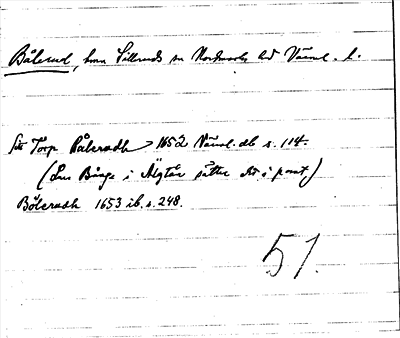 Bålerud, hmn Sillerud sn Nordmarks hd Värml. l.
Torp Bålerudh 1652 Värml. db s. 114.
(Lars Bånge i Älgtån sätter dit i pant)
Bölerudh 1653 ib. s. 248.
51.